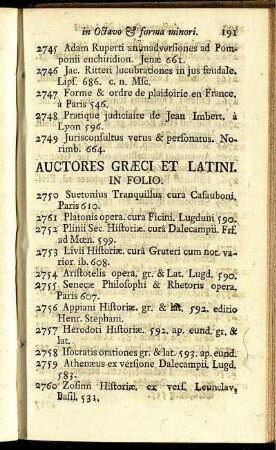 in Octavo & forma minori. 191
2745 Adam Ruperti animadversiones ad Pom-
ponii enchiridion. Jenæ 661.
2746 Jac. Ritteri lucubrationes in jus feudale.
Lips. 686. c. n. Msc.
2747 Forme & ordre de plaidoirie en France.
à Paris 546.
2748 Pratique judiciaire de Jean Imbert. à
Lyon 596.
2749 Jurisconsultus verus & personatus. No-
rimb. 664.
AUCTORES GRÆCI ET LATINI.
IN FOLIO.
2750 Suetonius Tranquillus cura Casauboni,
Paris 610.
2761 Platonis opera. cura Ficini. Lugduni 590.
2752 Plinii Sec. Historiæ. cura Dalecampii. Frf.
ad Mœn. 599.
2753 Livii Historiæ. cura Gruteri cum not. va-
rior. ib. 608.
2754 Aristotelis opera. gr. & Lat. Lugd. 590.
2755 Senecæ Philosophi & Rhetoris opera.
Paris 607.
2756 Appiani Historiæ. gr. & lat. 592. editio
Henr. Stephani.
2757 Herodoti Historiæ. 592. ap. eund. gr. &
lat.
2758 Isocratis orationes gr. & lat. 593. ap. eund.
2759 Athenæus ex versione Dalecampii, Lugd.
583.
2760 Zosimi Historiæ. ex vers. Leunclav.
Basil. 531.